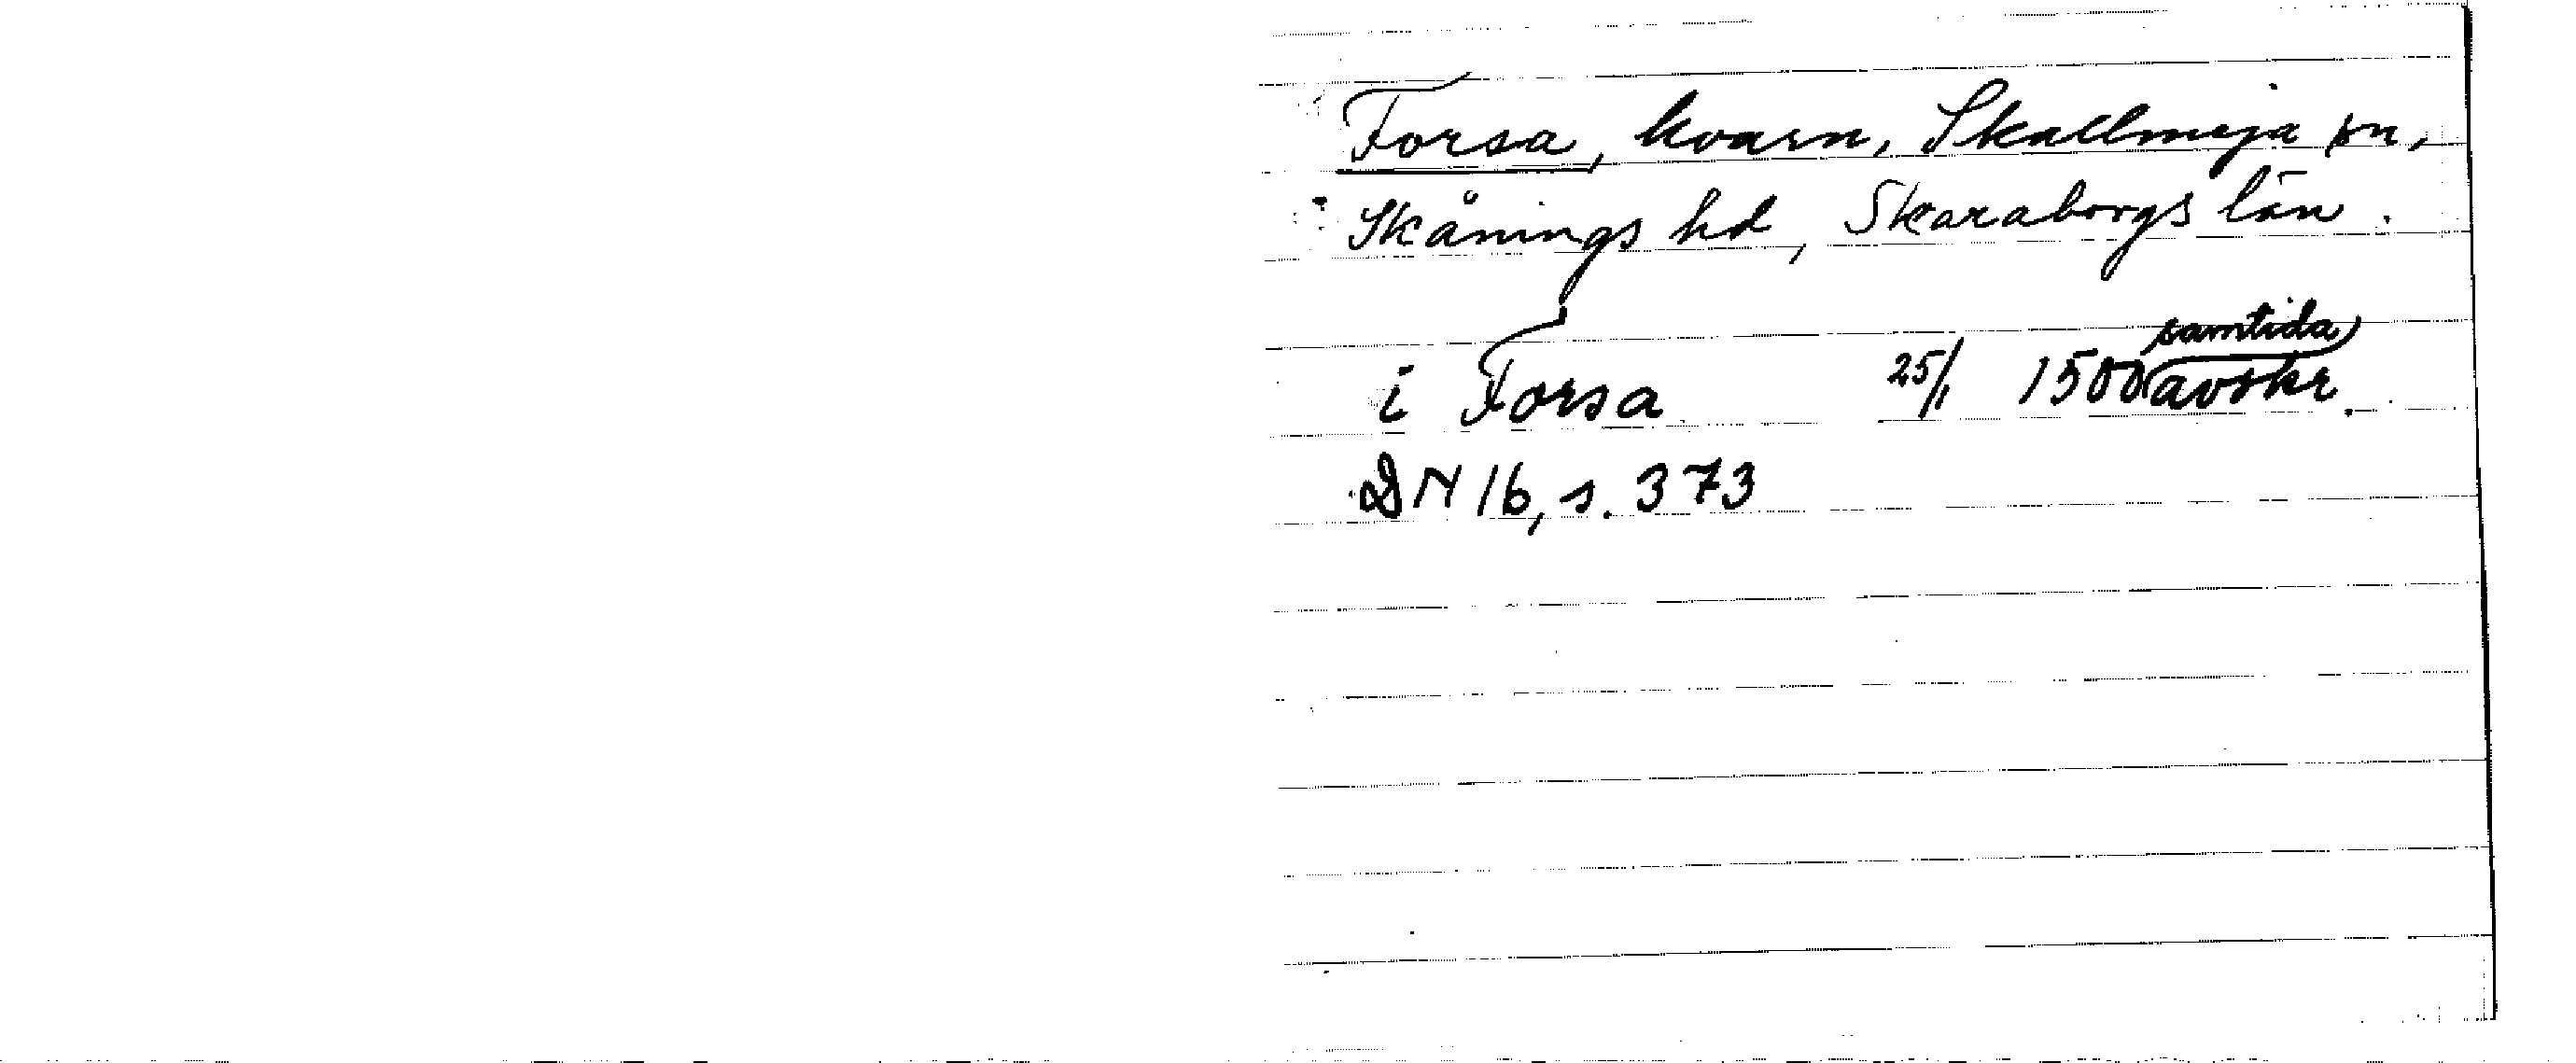 Forsa, kvarn, Skallmeja sn,
Skånings hd, Skaraborgs län.
i Forsa 25/1 1500 samtida avskr.
DN 16, s. 373